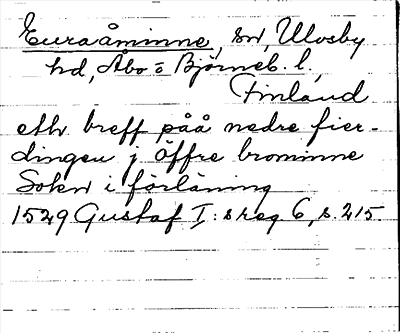 Euraåminne, sn, Ulvsby
hd, Åbo o Björneb. l,
Finland
eth breff påå nedre fier-
dingen j öffre brominne
Sokn i förläning
1529 Gustaf I:s reg. 6, s. 215.